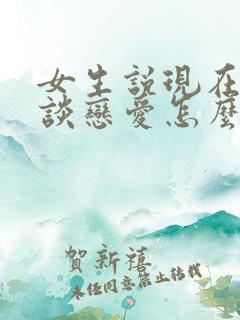 女生說現在
談戀愛怎麼
賀新禧
未经同意禁止转载